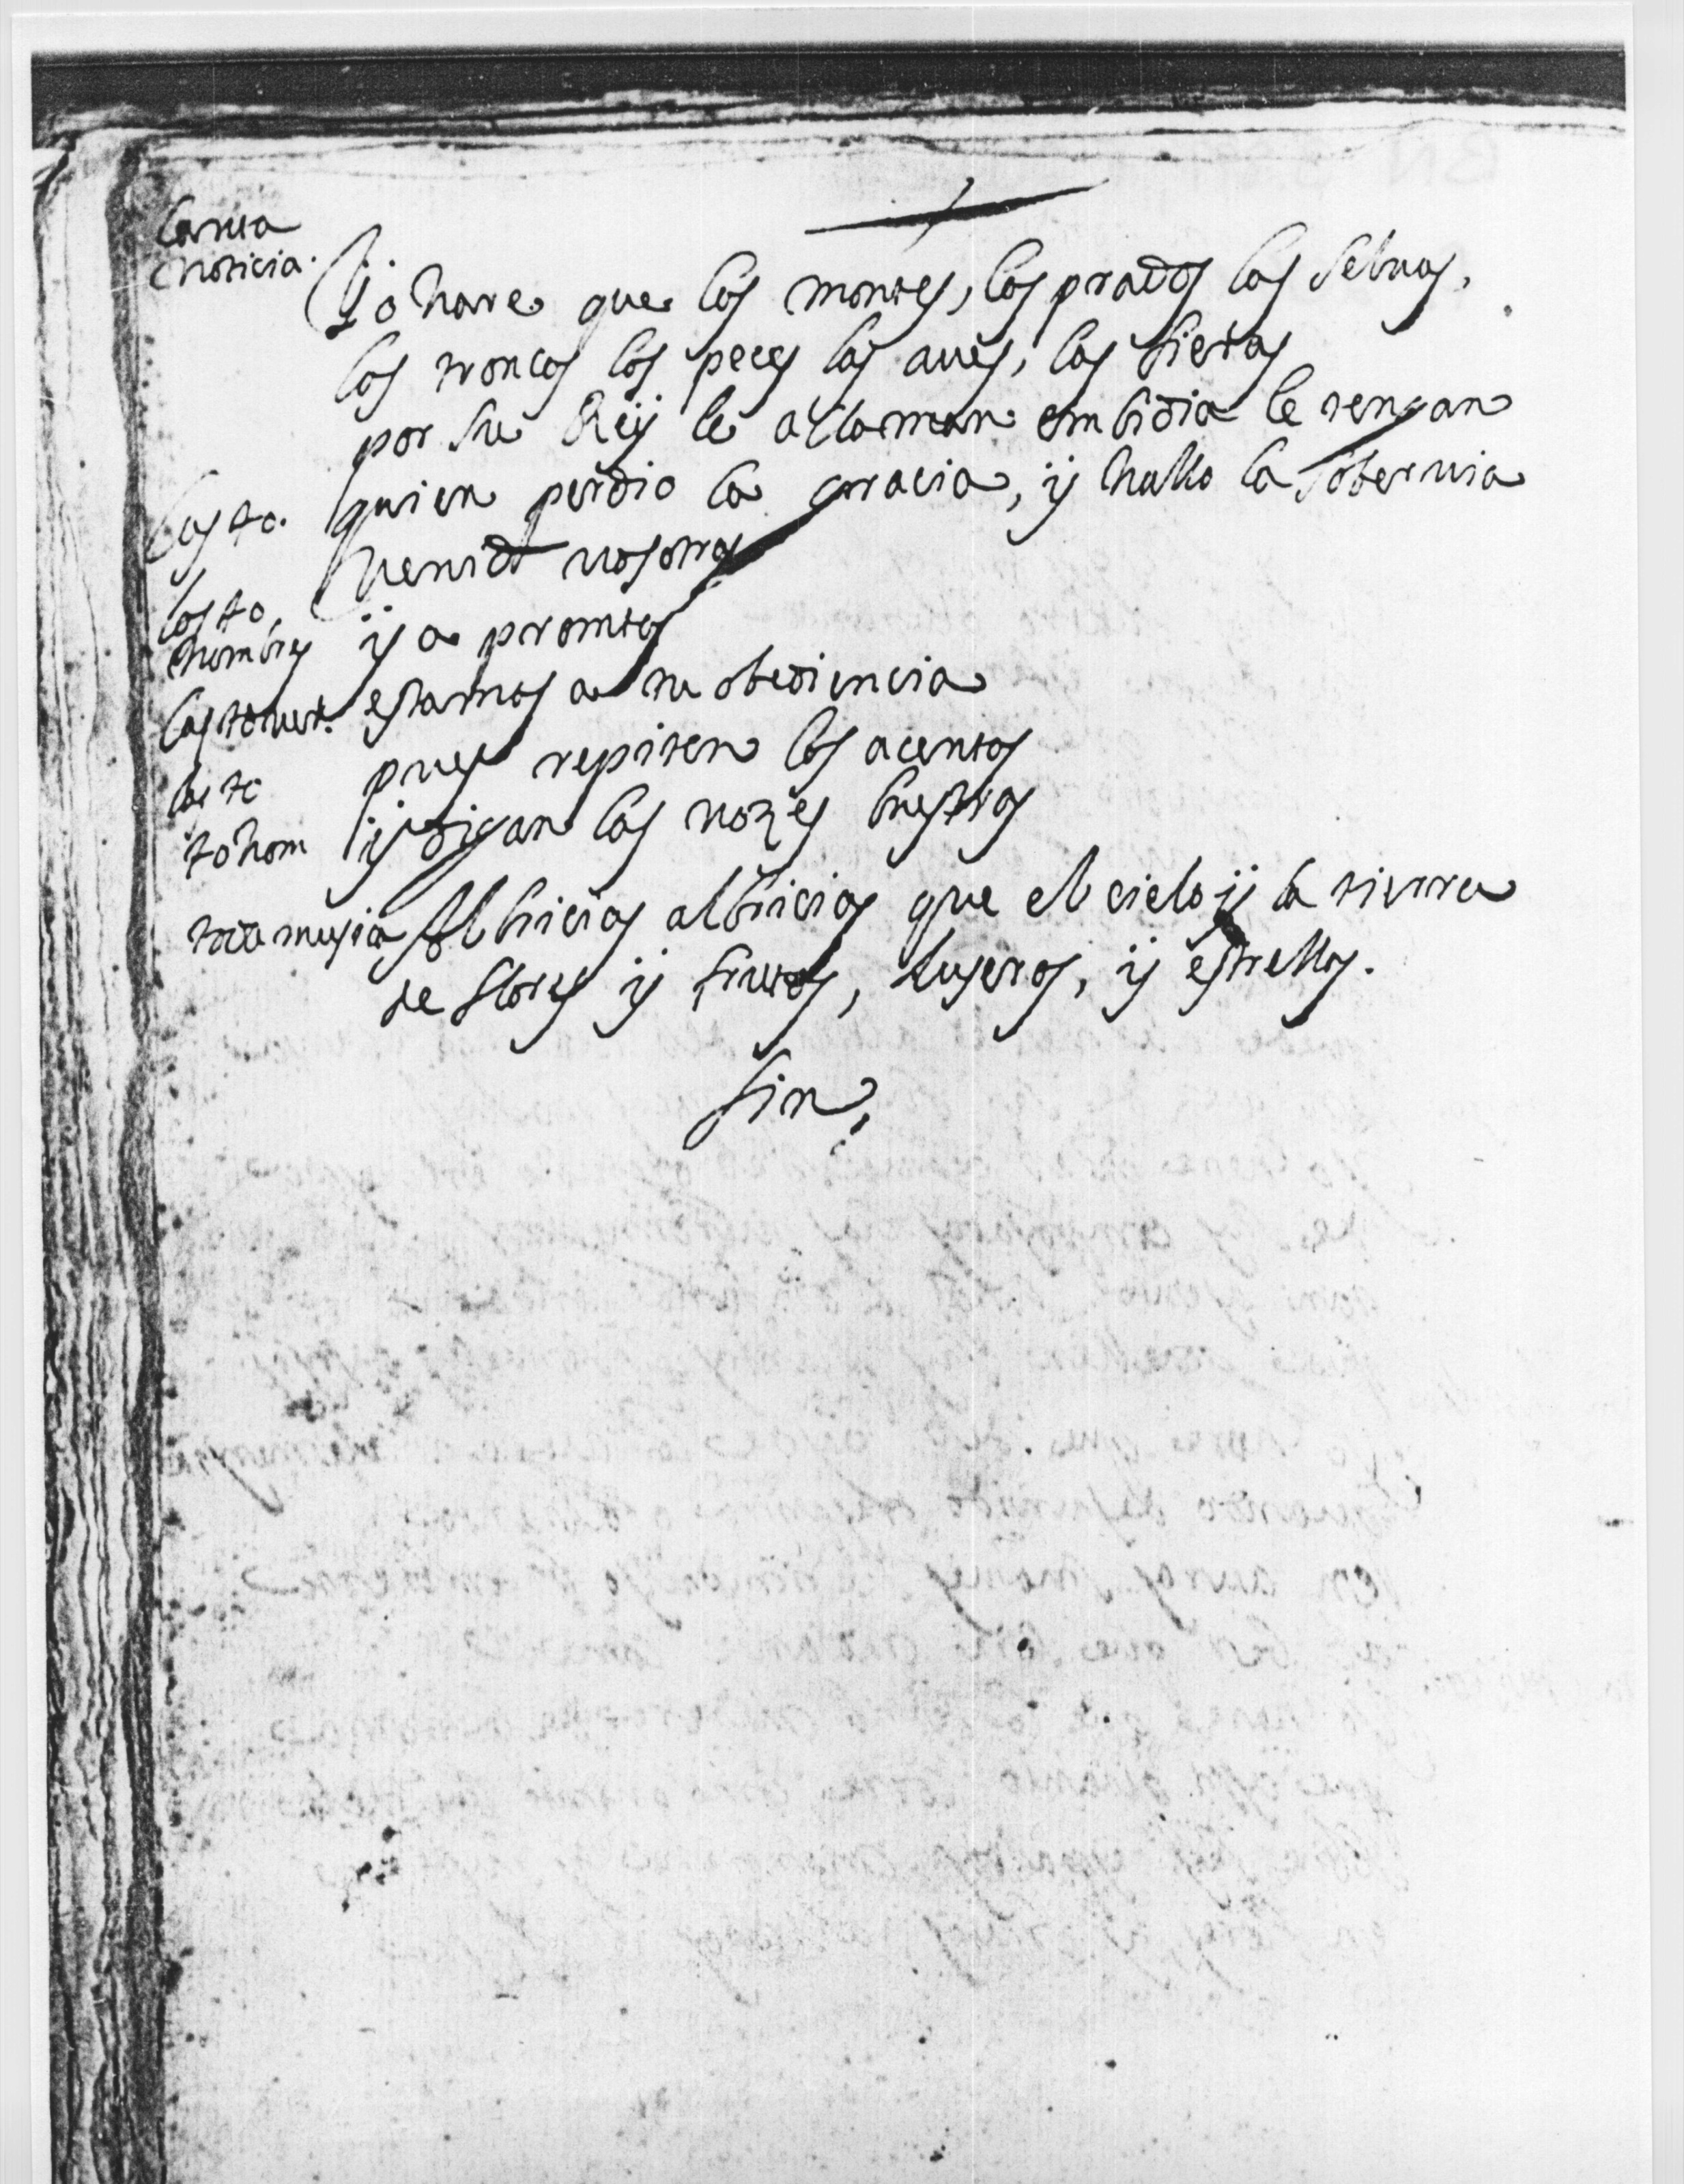 Canta
Noticia.
Yo hare que los montes, los prados las selbas,
los troncos los peces las aues, las fieras
por su Rey le aclaman embidia le tengan
las to. quien perdio la gracia, y hallo la soberuia
Venid vosotros
las to,
hombres ya promtos
estamos a tu obediencia
pues repiten los acentos
to hom y digan las vozes buestras
toda musica Albricias albricias que el cielo y la tierra
de flores y frutos, luseros, y estrellas.
fin